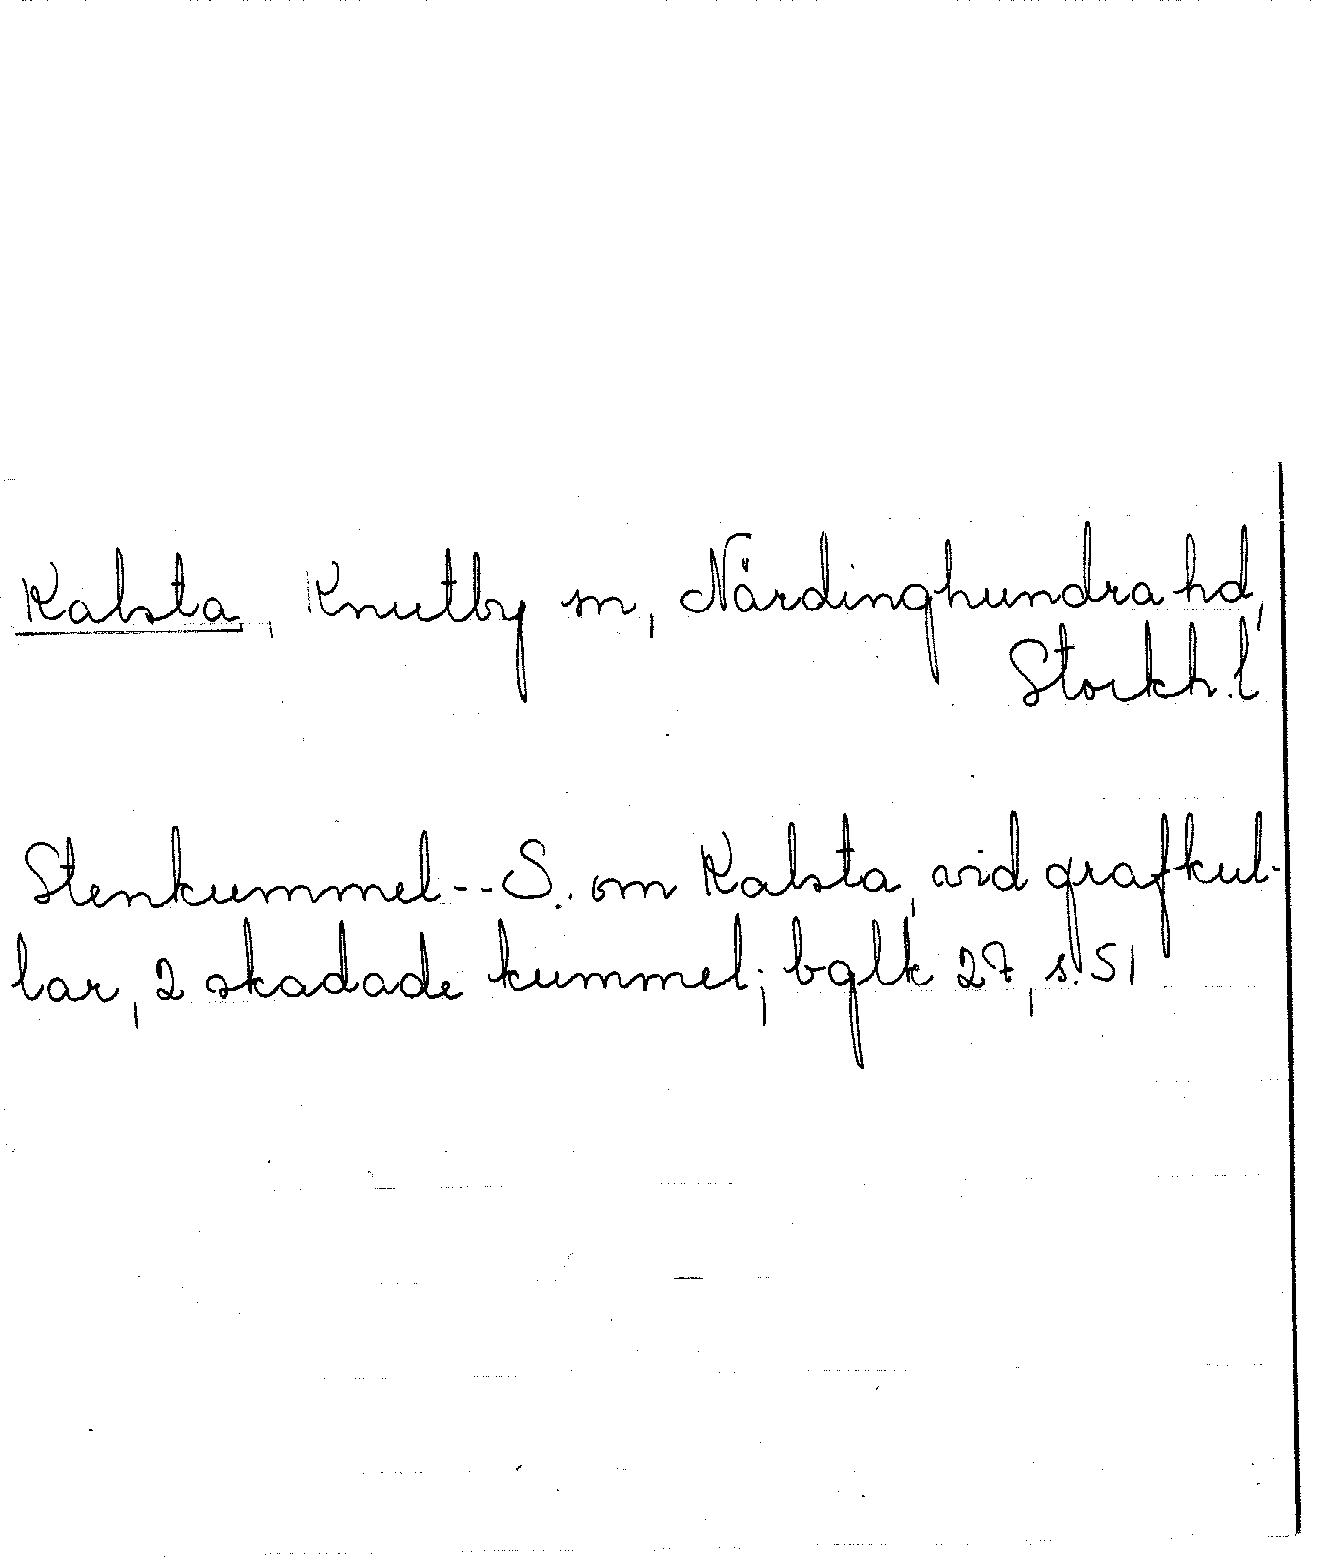 Kalsta, Knutby sn, Närdinghundra hd,
Stockh. l
Stenkummel -- S. om Kalsta, vid grafkul-
lar, 2 skadade kummel; bglk 27, s. 51